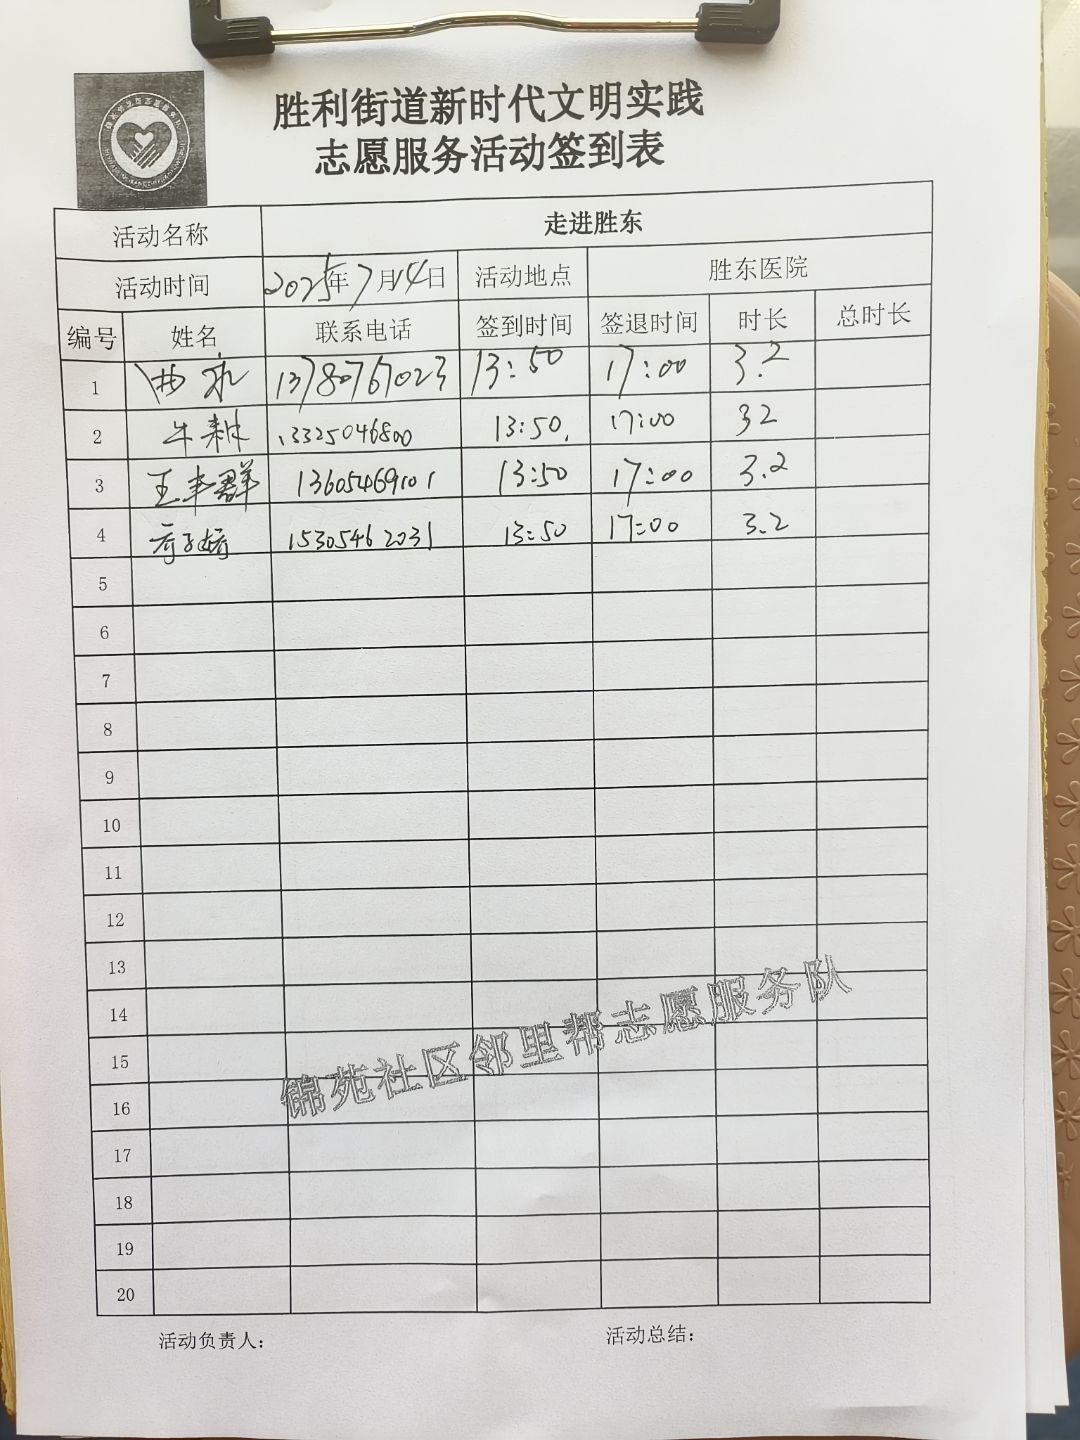 胜利街道新时代文明实践
志愿服务活动签到表
活动名称 走进胜东
活动时间 2025年7月14日 活动地点 胜东医院
编号 姓名 联系电话 签到时间 签退时间 时长 总时长
1 13780767023 13:50 17:00 3.2
2 牛耕 13325046800 13:50. 17:00 32
3 王丰群 13605469101 13:50 17:00 3.2
4 15305462031 13:50 17:00 3.2
5
6
7
8
9
10
11
12
13
14
15
16
17
18
19
20
锦苑社区邻里帮志愿服务队
活动负责人: 活动总结: